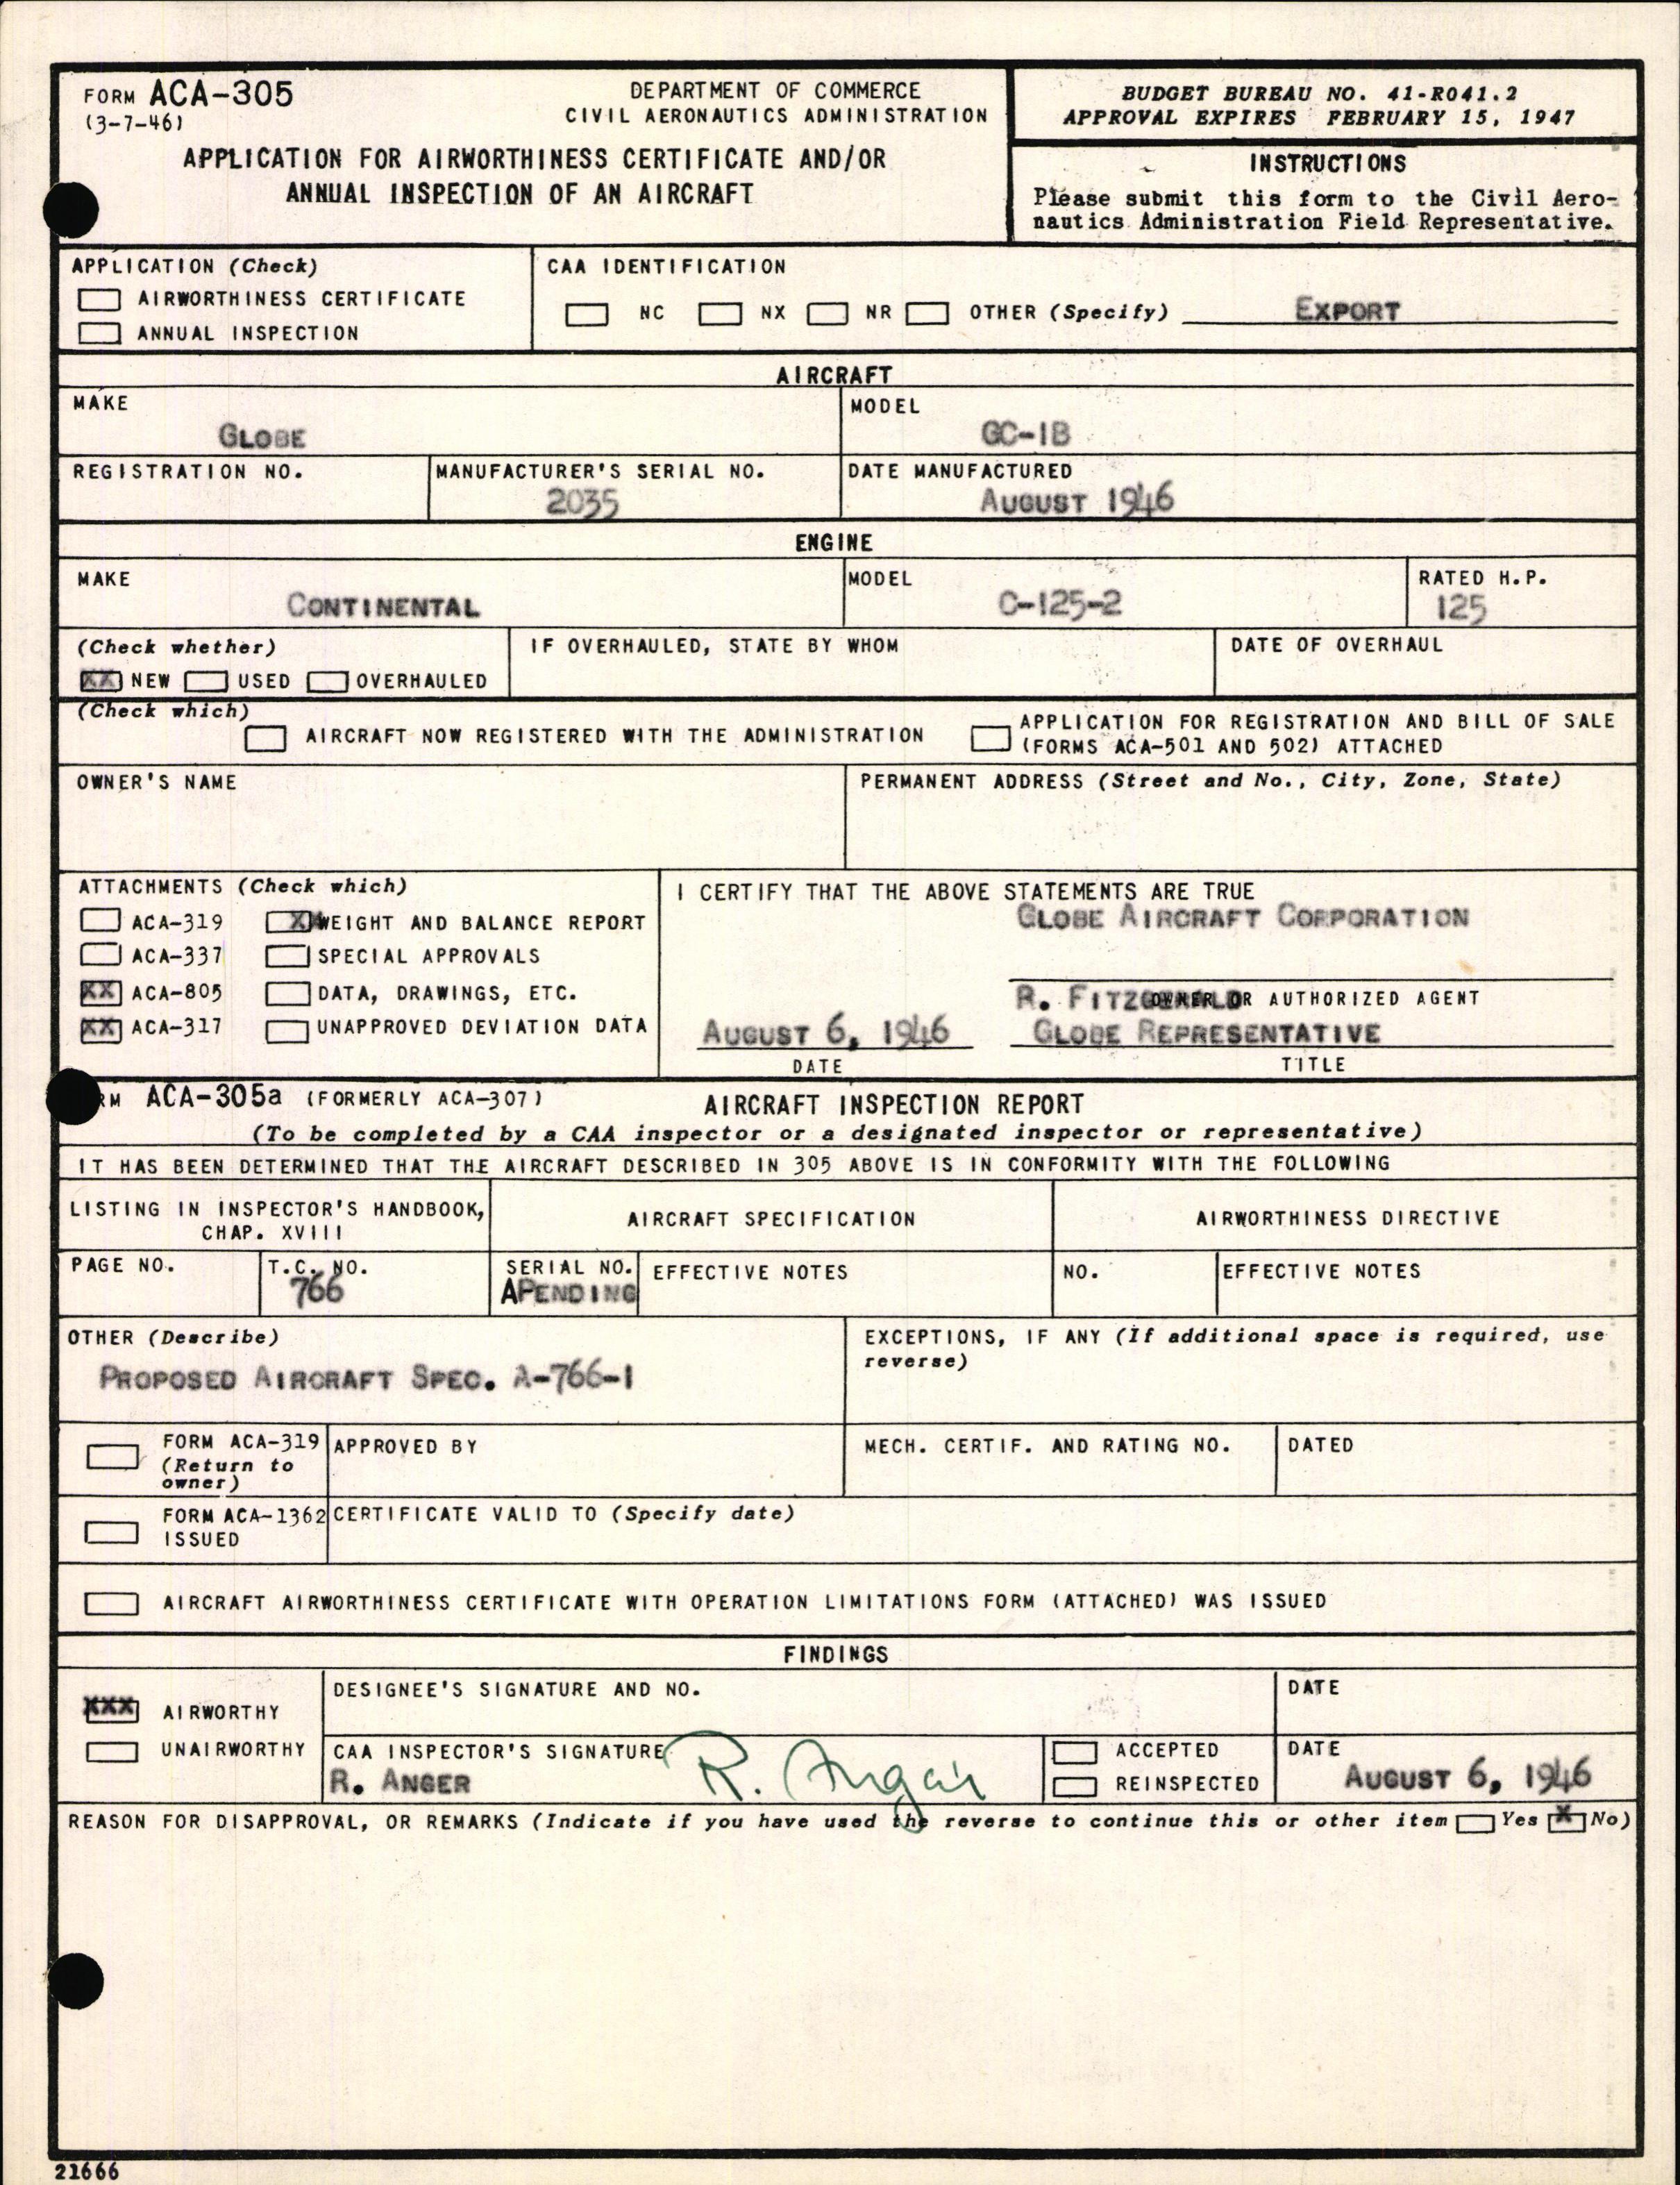 FORM ACA-305
(3-7-46)
DEPARTMENT OF COMMERCE
CIVIL AERONAUTICS ADMINISTRATION
APPLICATION FOR AIRWORTHINESS CERTIFICATE AND/OR
ANNUAL INSPECTION OF AN AIRCRAFT
BUDGET BUREAU NO. 41-R041.2
APPROVAL EXPIRES FEBRUARY 15, 1947
INSTRUCTIONS
Please submit this form to the Civil Aero-
nautics Administration Field Representative.
APPLICATION (Check)
AIRWORTHINESS CERTIFICATE
ANNUAL INSPECTION
CAA IDENTIFICATION
NC NX NR OTHER (Specify) EXPORT
AIRCRAFT
MAKE
GLOBE
MODEL
GC-1B
REGISTRATION NO.
MANUFACTURER'S SERIAL NO.
2035
DATE MANUFACTURED
AUGUST 1946
ENGINE
MAKE
CONTINENTAL
MODEL
C-125-2
RATED H.P.
125
(Check whether)
XX NEW USED OVERHAULED
IF OVERHAULED, STATE BY WHOM
DATE OF OVERHAUL
(Check which)
AIRCRAFT NOW REGISTERED WITH THE ADMINISTRATION
APPLICATION FOR REGISTRATION AND BILL OF SALE
(FORMS ACA-501 AND 502) ATTACHED
OWNER'S NAME
PERMANENT ADDRESS (Street and No., City, Zone, State)
ATTACHMENTS (Check which)
ACA-319 X WEIGHT AND BALANCE REPORT
ACA-337 SPECIAL APPROVALS
XX ACA-805 DATA, DRAWINGS, ETC.
XX ACA-317 UNAPPROVED DEVIATION DATA
I CERTIFY THAT THE ABOVE STATEMENTS ARE TRUE
GLOBE AIRCRAFT CORPORATION
R. FITZGERALD
OWNER OR AUTHORIZED AGENT
AUGUST 6, 1946
DATE
GLOBE REPRESENTATIVE
TITLE
RM ACA-305a (FORMERLY ACA-307)
AIRCRAFT INSPECTION REPORT
(To be completed by a CAA inspector or a designated inspector or representative)
IT HAS BEEN DETERMINED THAT THE AIRCRAFT DESCRIBED IN 305 ABOVE IS IN CONFORMITY WITH THE FOLLOWING
LISTING IN INSPECTOR'S HANDBOOK,
CHAP. XVIII
AIRCRAFT SPECIFICATION
AIRWORTHINESS DIRECTIVE
PAGE NO.
T.C. NO.
766
SERIAL NO.
APENDING
EFFECTIVE NOTES
NO.
EFFECTIVE NOTES
OTHER (Describe)
PROPOSED AIRCRAFT SPEC. A-766-1
EXCEPTIONS, IF ANY (If additional space is required, use
reverse)
FORM ACA-319
(Return to
owner)
APPROVED BY
MECH. CERTIF. AND RATING NO.
DATED
FORM ACA-1362
ISSUED
CERTIFICATE VALID TO (Specify date)
AIRCRAFT AIRWORTHINESS CERTIFICATE WITH OPERATION LIMITATIONS FORM (ATTACHED) WAS ISSUED
FINDINGS
XXX AIRWORTHY
UNAIRWORTHY
DESIGNEE'S SIGNATURE AND NO.
DATE
CAA INSPECTOR'S SIGNATURE
R. ANGER
R. Anger
ACCEPTED
REINSPECTED
DATE
AUGUST 6, 1946
REASON FOR DISAPPROVAL, OR REMARKS (Indicate if you have used the reverse to continue this or other item Yes X No)
21666